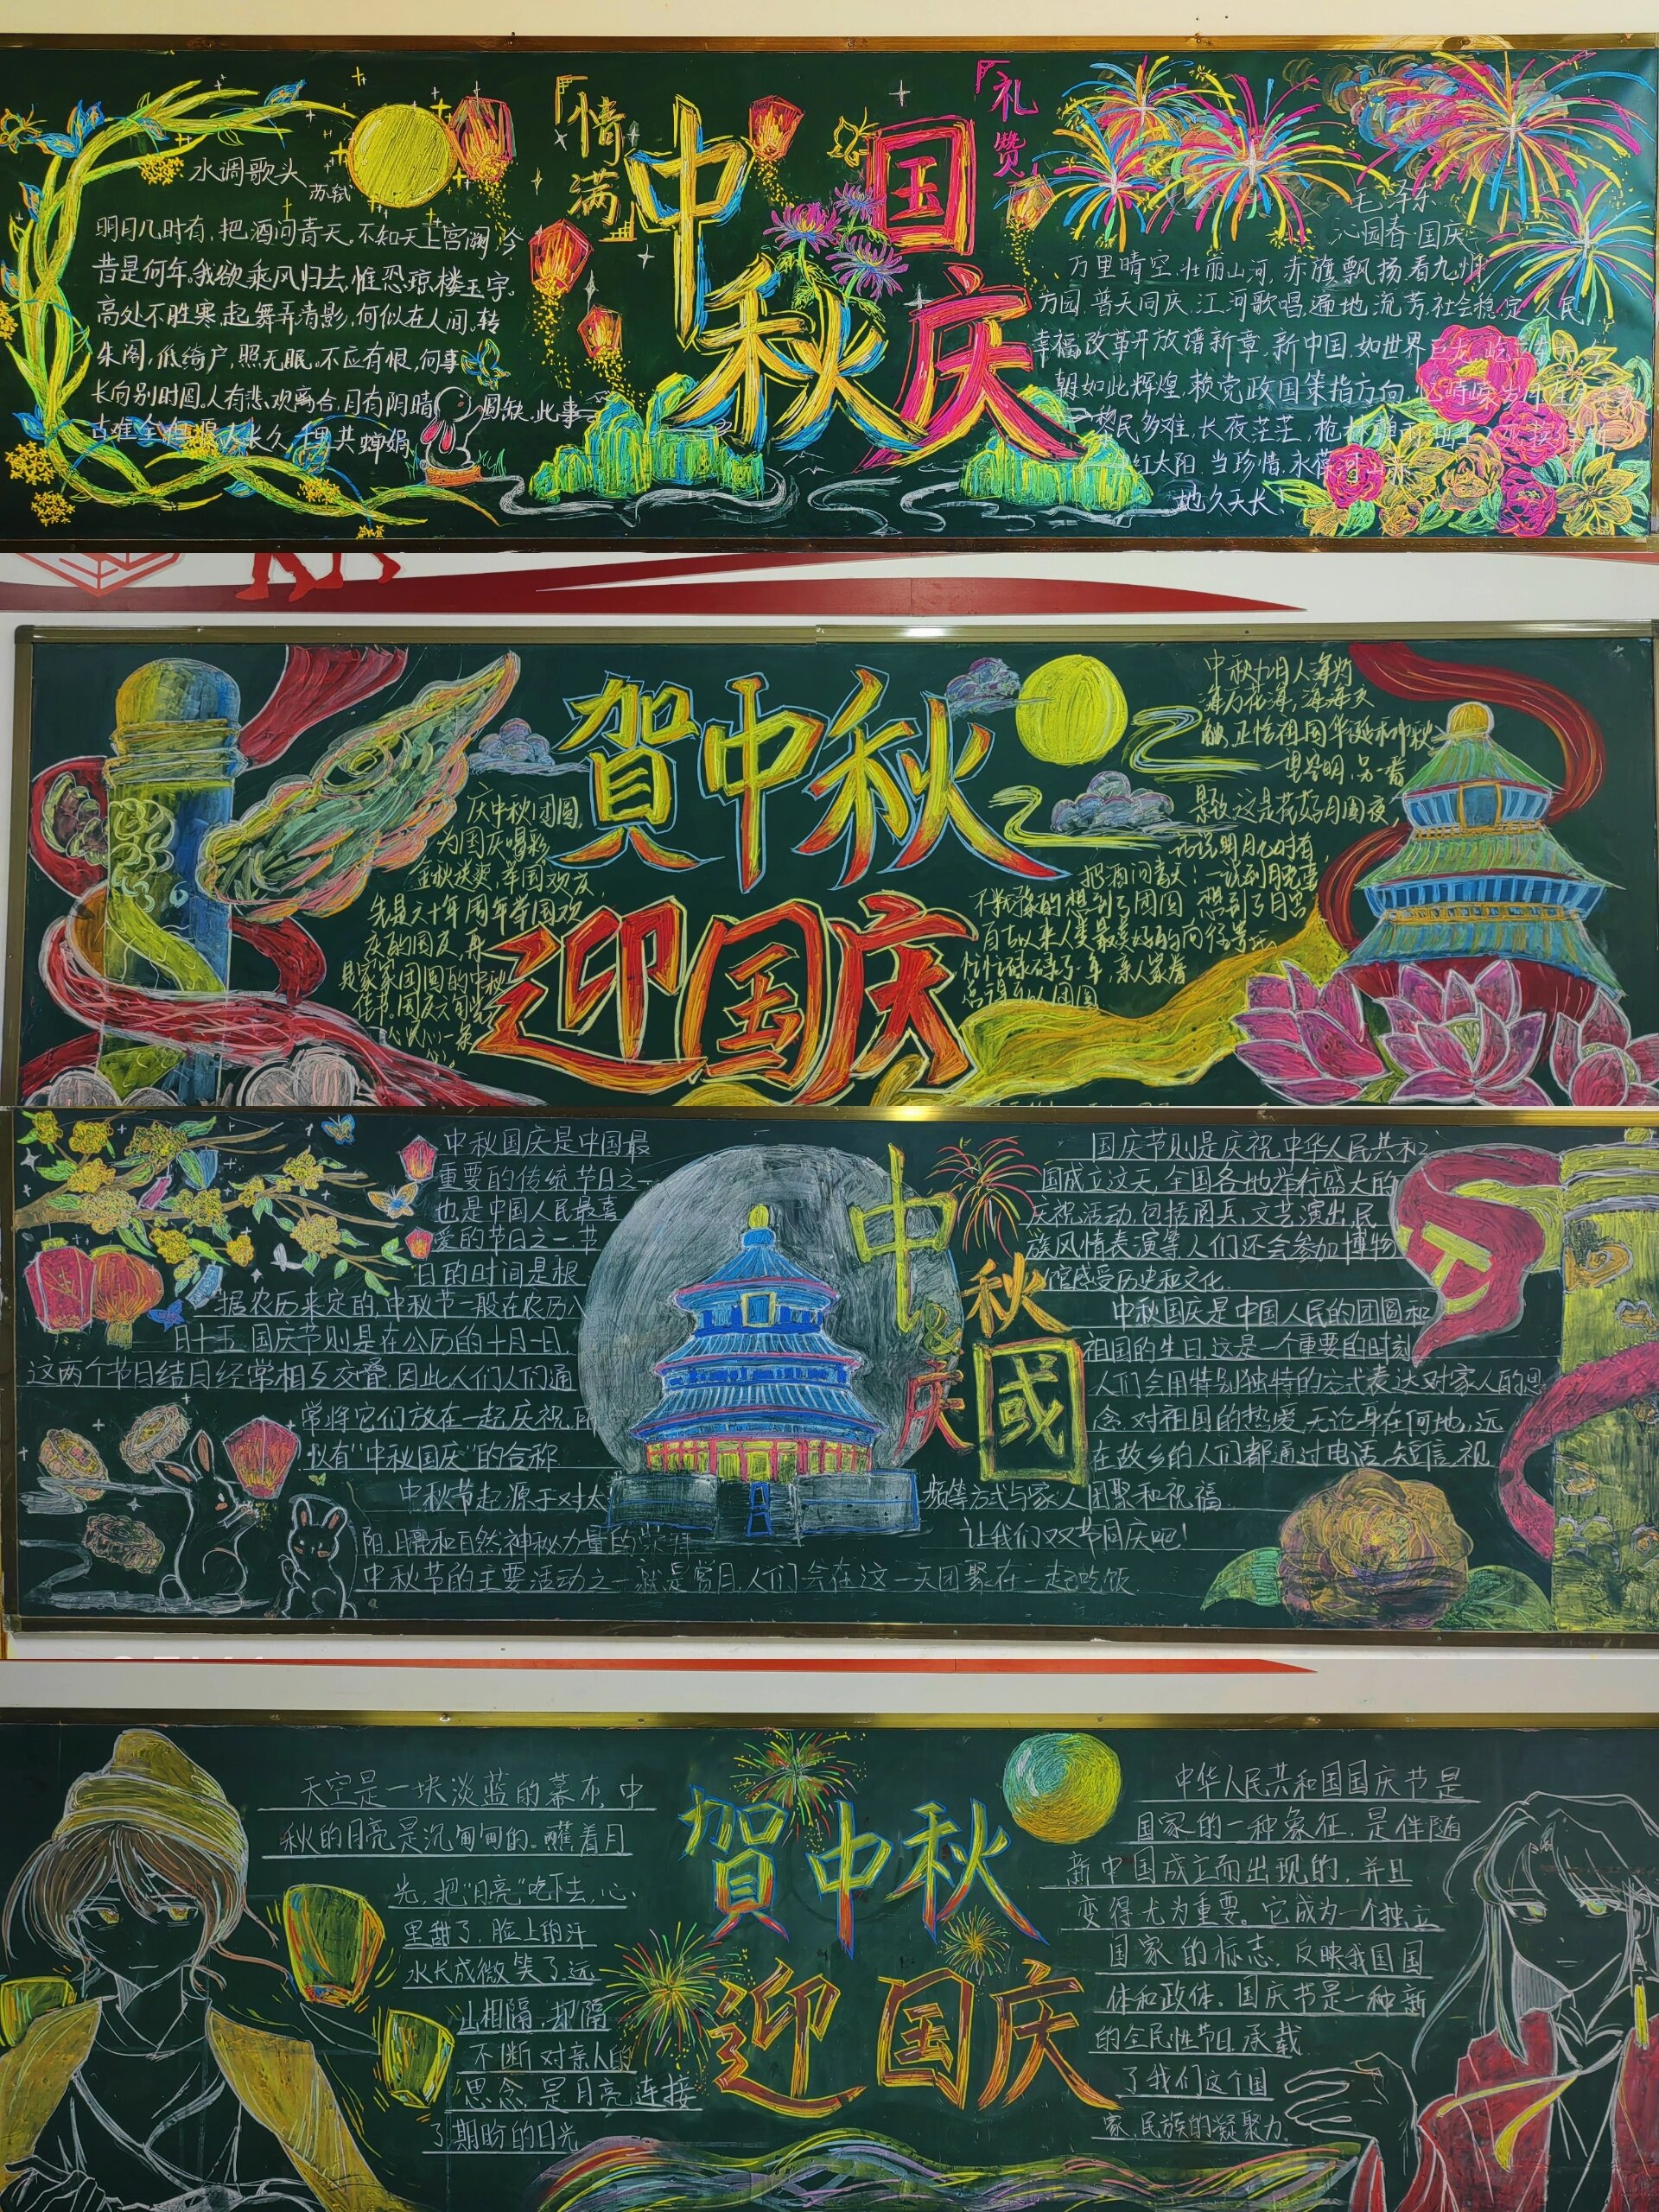 「情满」
中秋
国庆
「礼赞
水调歌头
苏轼
明月几时有,把酒问青天。不知天上宫阙,今
昔是何年。我欲乘风归去,惟恐琼楼玉宇。
高处不胜寒,起舞弄清影,何似在人间。转
朱阁,低绮户,照无眠。不应有恨,何事
长向别时圆。人有悲欢离合,月有阴晴圆缺,此事
古难全但愿人长久,千里共婵娟
毛泽东
沁园春国庆
万里晴空,壮丽山河,赤旗飘扬看九州
方园,普天同庆,江河歌唱,遍地流芳,社会稳定,人民
幸福改革开放谱新章,新中国,如世界
朝如此辉煌,赖党政国策指方向,忆峥嵘岁月
黎民多难,长夜茫茫,枪林弹雨
红太阳.当珍惜.永葆河山
地久天长!
賀中秋
迎国庆
庆中秋团圆,
为国庆喝彩
金秋送爽,举国欢庆,
先是六十年周年举国欢
庆的国庆,再
是家家团圆的中秋
佳节.国庆六旬
中秋九月人海灯
海万花海,海海交
融,正恰祖国华诞和中秋
景致,这是花好月圆夜,
话说明月几时有,
把酒问青天!一说到月亮
不禁的想到了团圆 想到了月
自古以来人类最美好的向往
忙忙碌碌了一年,亲人家眷
总得以团圆
中秋国庆是中国最
重要的传统节日之一
也是中国人民最喜
爱的节日之一.节
日的时间是根
据农历来定的,中秋节一般在农历八
月十五,国庆节则是在公历的十月一日
这两个节日结日经常相互交叠,因此人们人们通
常将它们放在一起庆祝,所
以有“中秋国庆”的合称
中秋节起源于对太
阳,月亮和自然神秘力量的崇拜
中秋节的主要活动之一就是赏月,人们会在这一天团聚在一起吃饭.
中秋
&
庆國
国庆节则是庆祝中华人民共和
国成立这天,全国各地举行盛大的
庆祝活动,包括阅兵,文艺演出,民
族风情表演等人们还会参加博物
馆感受历史和文化.
中秋国庆是中国人民的团圆和
祖国的生日,这是一个重要的时刻
人们会用特别独特的方式表达对家人的思
念,对祖国的热爱,无论身在何地,远
在故乡的人们都通过电话,短信,视
频等方式与家人团聚和祝福.
让我们双节同庆吧!
天空是一块淡蓝的幕布,中
秋的月亮是沉甸甸的。蘸着月
光,把“月亮”吃下去,心
里甜了,脸上的汗
水长成微笑了,远
山相隔,却隔
不断对亲人的
思念,是月亮连接
了期盼的目光
賀中秋
迎国庆
中华人民共和国国庆节是
国家的一种象征,是伴随
新中国成立而出现的,并且
变得尤为重要。它成为一个独立
国家的标志,反映我国国
体和政体,国庆节是一种新
的全民性节日,承载
了我们这个国
家,民族的凝聚力。